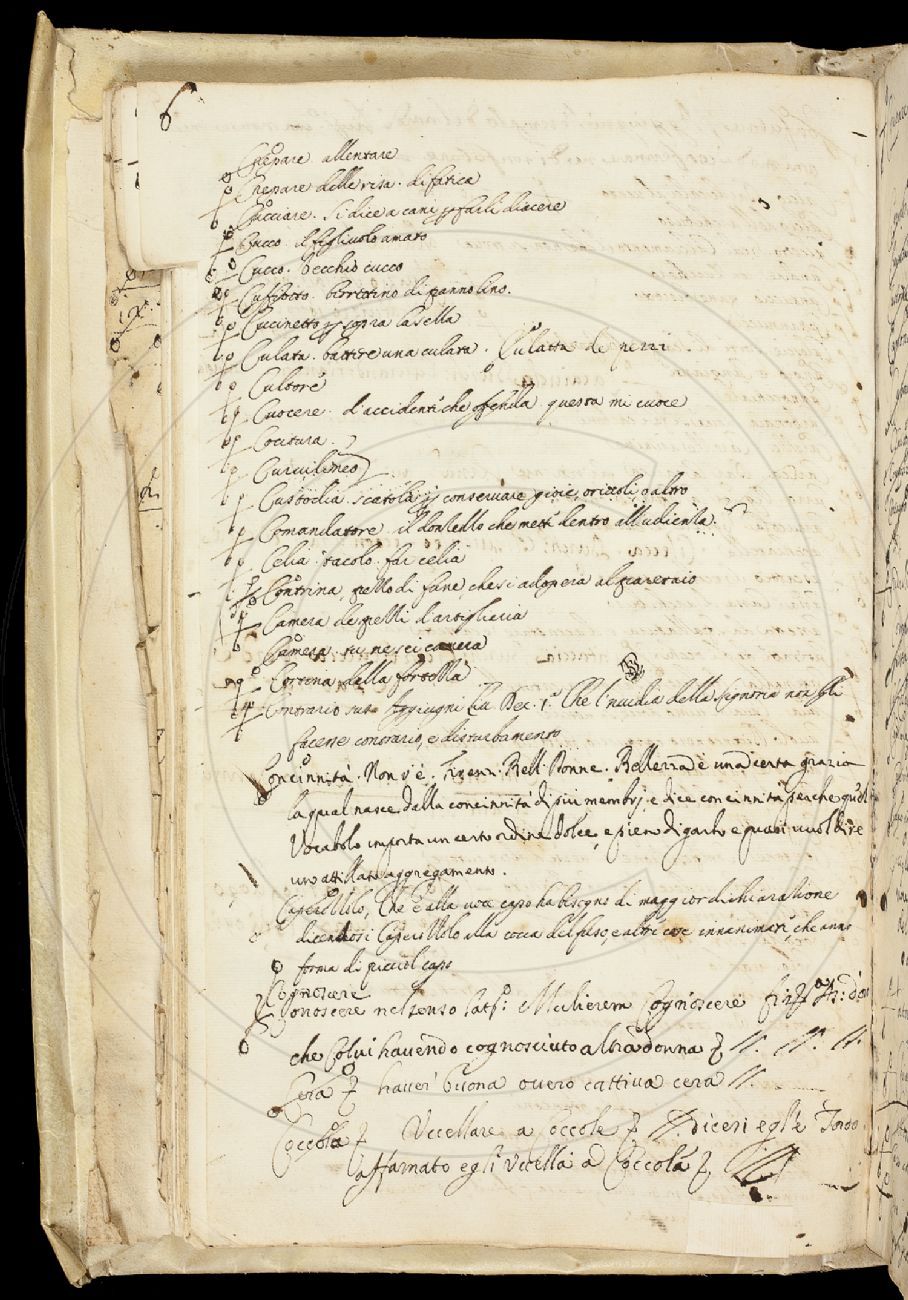 6
Crepare allentare
Crepare delle risa. di fatica
Cucciare. Si dice a cani p farli diacere
Cucco. il figliuolo amato
Cucco. Vecchio cucco
Cuffiotto. berrettino di pannolino.
Cuccinetto p sopra la sella
Culata. battere una culata. Culatta de pezzi
Cultore
Cuocere. d'accidenti che offenda questa mi cuoce
Cocitura.
Curvilineo
Custodia. scatola p conservare gioie, oriuoli, o altro
Comandatore. il donzello che mett dentro all'udienza.
Celia. far celia
Contrina, di fune che si adopera al
Camera de pezzi d'artiglieria
Camera. tu ne sei
Cortina della fortezza
Contrario sust. Aggiugni Liv. Dec. 1.ª Che l'nvidia della Signoria non gli
facesse contrario, e disturbamento
Concinnità. Non v'è. Firenz. Bell. Donne. Bellezza è una certa grazia
la qual nasce dalla concinnità di più membrj. e dice concinnità perche ql
Vocabolo importa un certo ordine dolce, e pieno di garbo e quasi vuol dire
uno attillato aggregamento.
Capezzolo, Che è alla voce capo ha bisogno di maggior dichiarazione
dicendosi Capezzolo alla cocca del fuso, e altre cose innanimate, che anno
forma di picciol capo
Cognoscere
Conoscere nel senso lat.º Mulierem Cognoscere
che Colui havendo cognosciuto altra donna
Cera haver buona overo cattiva cera
Coccola Uccellare a coccole dicesi egl'è Tordo
affamato egli Uccella a Coccola